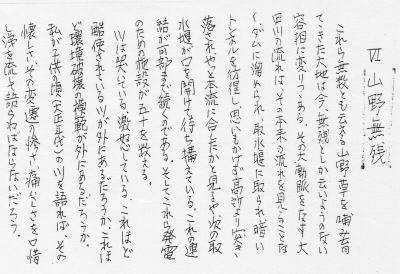 Ⅵ 山野無残
これら無数とも云える山野草を哺育し
てきた大地は今、無残としか云いようのない
容相に変りつつある。その大動脈をなす大
田川の流れは、その本来の流れを見ることな
く、ダムに溜められ、取水堰に取られ、暗い
トンネルを彷徨し、思いもかけず高所より突き
落され、やっと本流に合したかと見るや、次の取
水堰が口を開けて待ち構えている。これの連
結が河口まで続くのである。そしてこれら発電
のための施設が五十を数える。
川は哭いている。激怒している。これほど
酷使されている川が外にあるだろうか。これほ
ど環境破壊の模範が外にあるだろうか。
私が子供の頃（大正年代）の川を語れば、その
懐しさ、その変遷の惨さ、痛わしさを口惜
し涙を流して語らねばならないだろう。